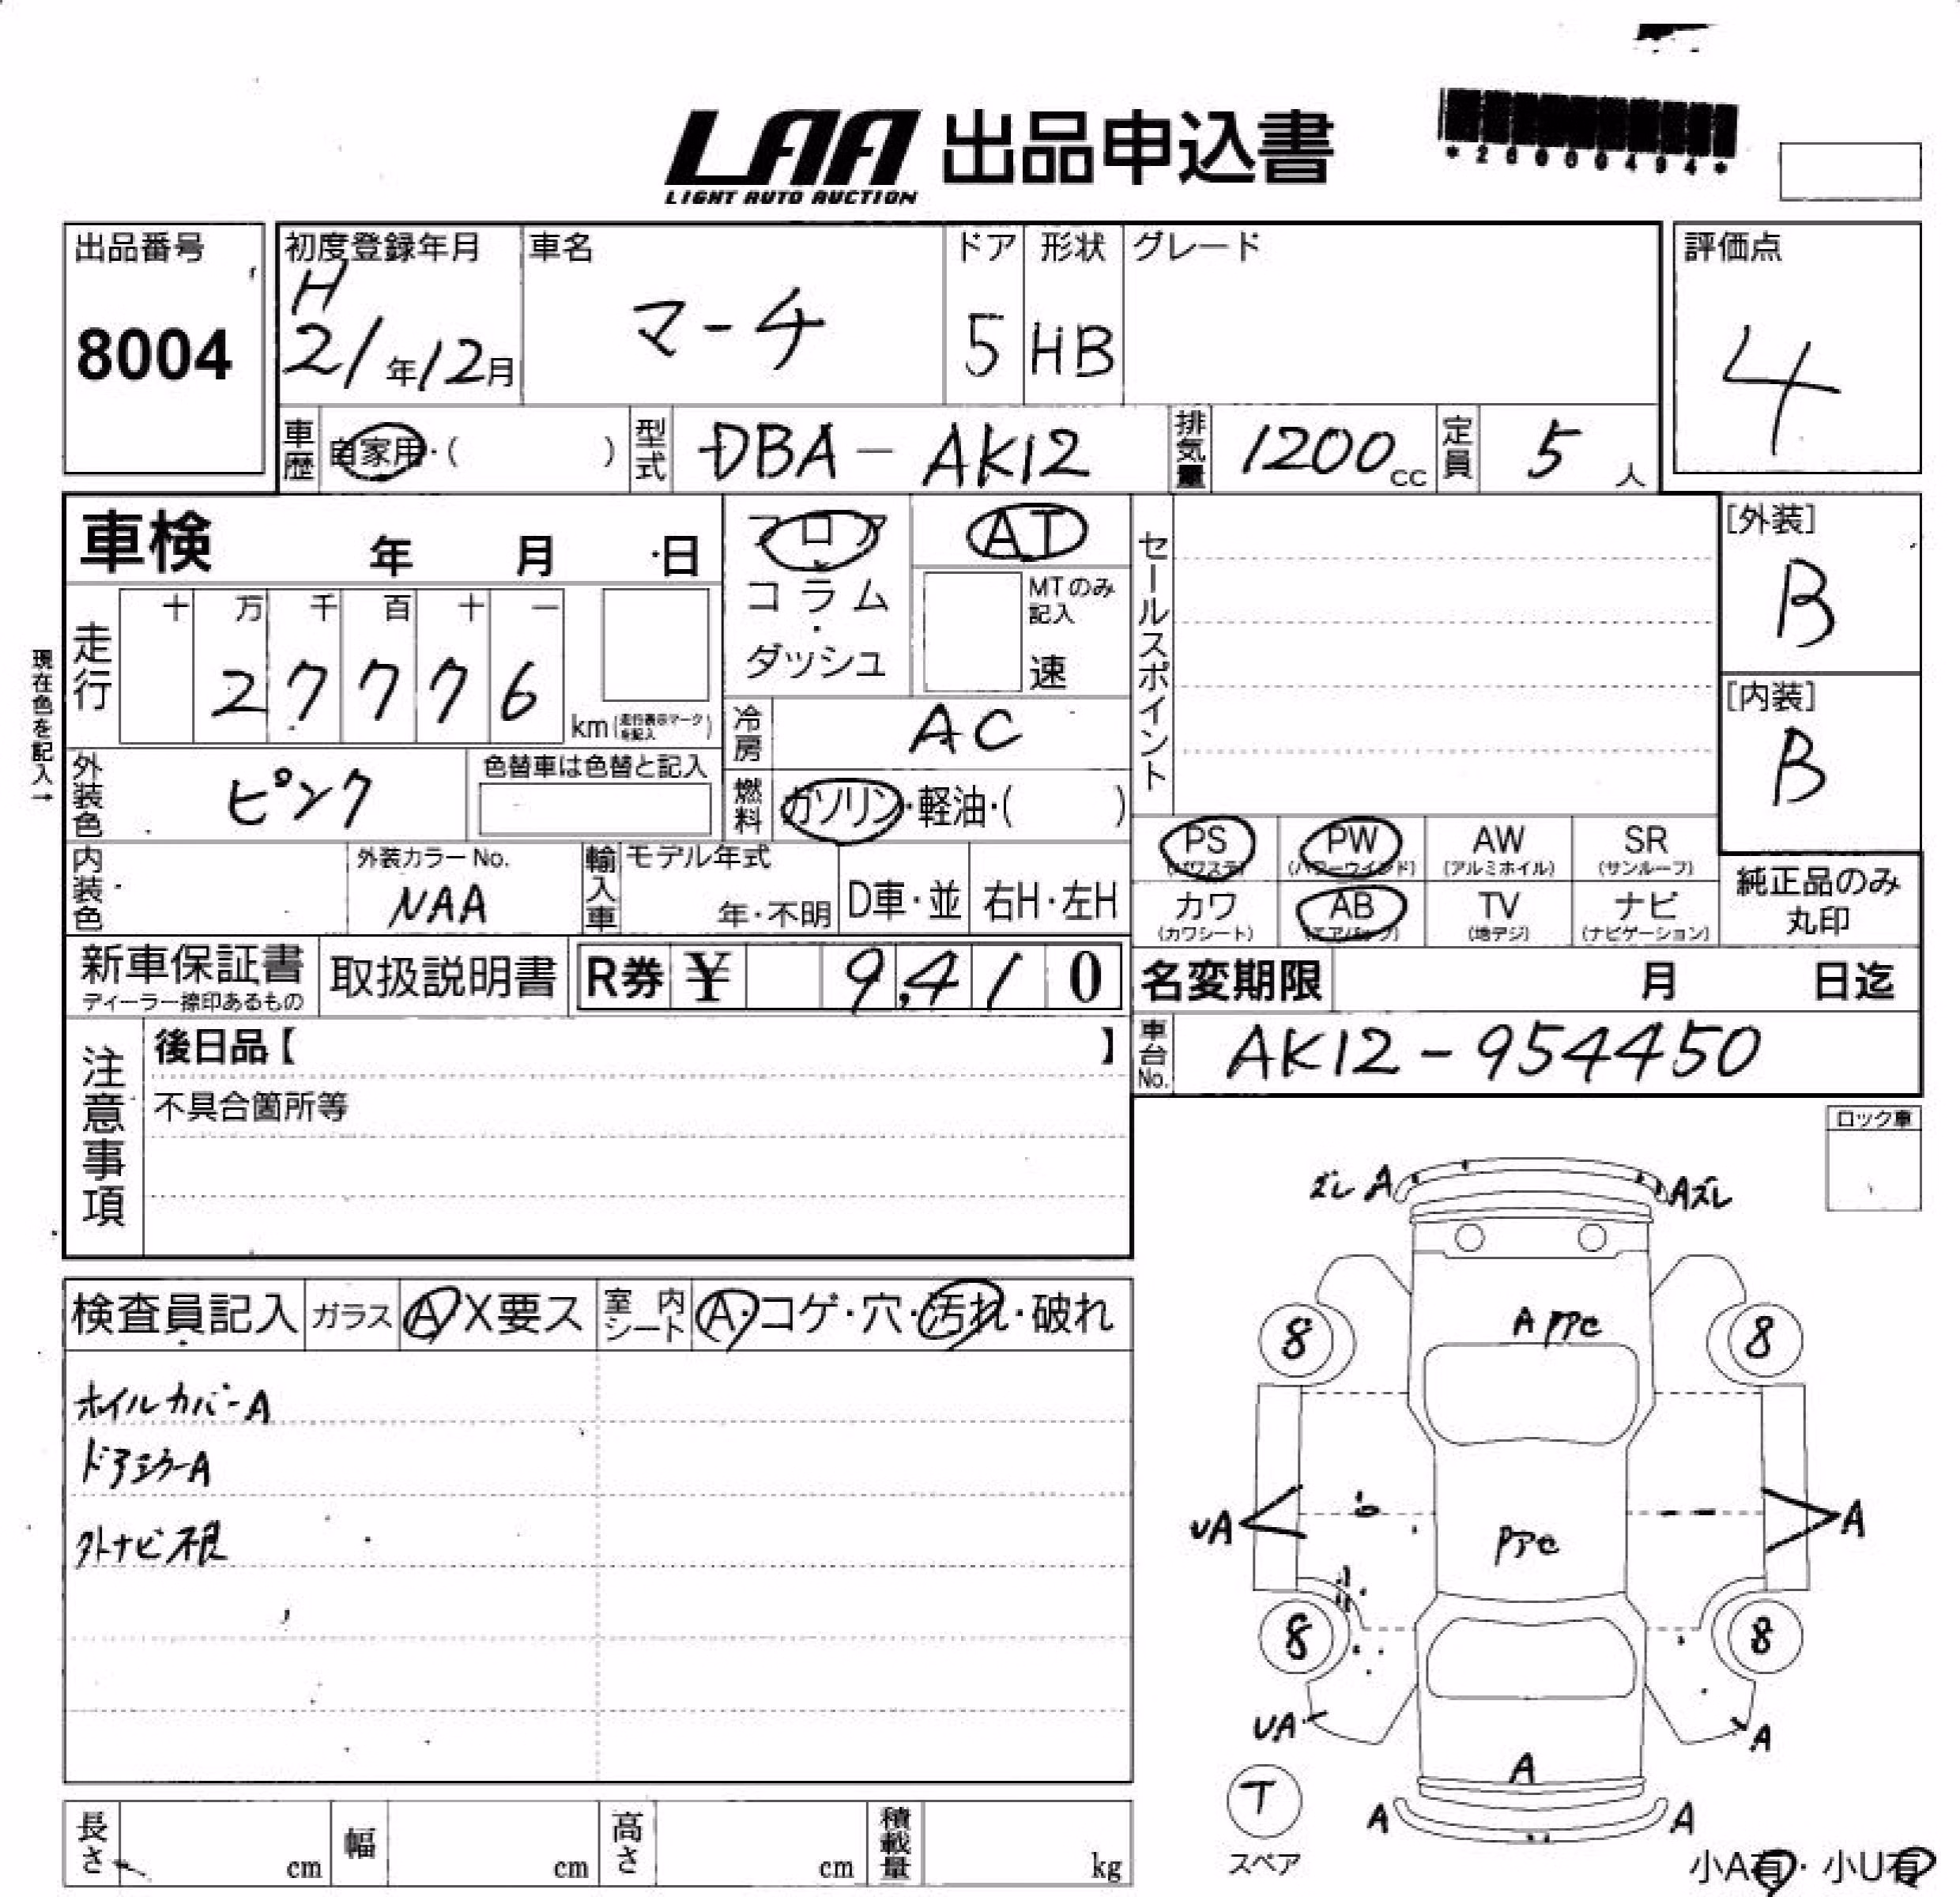 LAA 出品申込書
LIGHT AUTO AUCTION
*26000494*
出品番号
8004
初度登録年月
H
21年12月
車名
マーチ
ドア
5
形状
HB
グレード
評価点
4
車歴 自家用・( )
型式 DBA-AK12
排気量 1200cc
定員 5人
車検 年 月 日
フロア・コラム・ダッシュ
AT
MTのみ記入
速
セールスポイント
[外装]
B
[内装]
B
現在色を記入→
走行
十 万 千 百 十 一
2 7 7 7 6
km(走行表示マークを記入)
冷房 AC
外装色 ピンク
色替車は色替と記入
燃料 ガソリン・軽油・( )
内装色
外装カラーNo.
NAA
輸入車
モデル年式
年・不明
D車・並
右H・左H
PS (パワステ)
PW (パワーウインド)
AW (アルミホイル)
SR (サンルーフ)
カワ (カワシート)
AB (エアバッグ)
TV (地デジ)
ナビ (ナビゲーション)
純正品のみ
丸印
新車保証書
ディーラー捺印あるもの
取扱説明書
R券 ¥ 9,410
名変期限 月 日迄
車台No. AK12-954450
注意事項
後日品【 】
不具合箇所等
ロック車
検査員記入
ガラス A X要ス
室内シート A・コゲ・穴・汚れ・破れ
ホイルカバーA
ドアミラーA
外ナビ不良
ズレ A
Aズレ
A PPC
8
8
UA
A
PPC
8
8
UA
A
A
T
スペア
A
A
小A有・小U有
長さ cm
幅 cm
高さ cm
積載量 kg